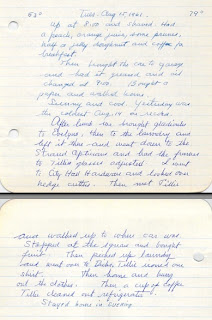 61° Tues. Aug. 15, 1961. 79°
Up at 8:00 and shaved. Had
a peach, orange juice, some prunes,
half a jelly doughnut and coffee for
breakfast.
Then brought the car to garage
and had it greased and oil
changed at 9:00. Bought a
paper and walked home.
Sunny and cool. Yesterday was
the coldest Aug. 14 on record.
After lunch we brought
to Evelyns, then to the laundry and
left it there and went down to the
Opticians and had the frames
to Tillies glasses adjusted. I went
to City Hall Hardware and looked over
hedge cutters. Then met Tillie
and walked up to where car was.
Stopped at the square and bought
fruit. Then picked up laundry
and went on to Tillie
shirt. Then home and hung
out the clothes. Then a cup of coffee
Tillie cleaned out refrigerator.
Stayed home in evening.